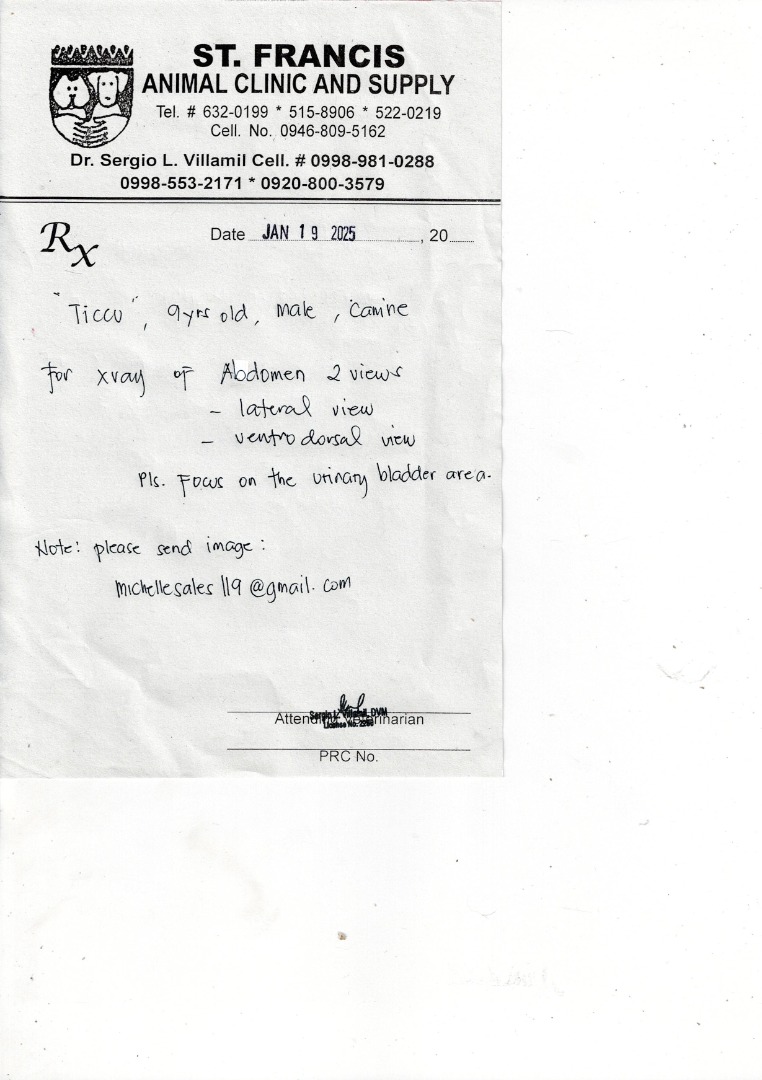 ST. FRANCIS
ANIMAL CLINIC AND SUPPLY
Tel. # 632-0199 * 515-8906 * 522-0219
Cell. No. 0946-809-5162
Dr. Sergio L. Villamil Cell. # 0998-981-0288
0998-553-2171 * 0920-800-3579
Rx
Date JAN 19 2025, 20
"Ticcu", 9yrs old, male, canine
for xray of Abdomen 2 views
- lateral view
- ventrodorsal view
Pls. Focus on the urinary bladder area.
Note: please send image:
michellesales119@gmail.com
Sergio L. Villamil, DVM
Attending Veterinarian
License No.
PRC No.